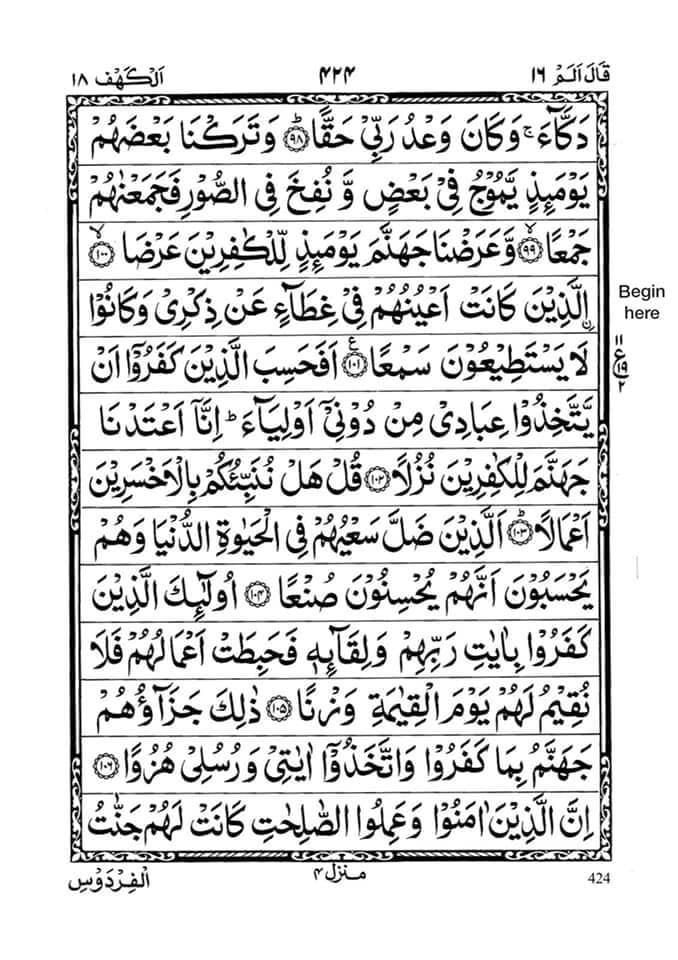 قَالَ اَلَمْ ١٦ ٤٢٤ اَلْكَهْف ١٨
دَكَّآءَ ۚ وَكَانَ وَعْدُ رَبِّیْ حَقًّا ؕ﴿۹۸﴾ وَتَرَكْنَا بَعْضَهُمْ
یَوْمَىِٕذٍ یَّمُوْجُ فِیْ بَعْضٍ وَّ نُفِخَ فِی الصُّوْرِ فَجَمَعْنٰهُمْ
جَمْعًا ۙ﴿۹۹﴾ وَّعَرَضْنَا جَهَنَّمَ یَوْمَىِٕذٍ لِّلْكٰفِرِیْنَ عَرْضَا ۙ﴿۱۰۰﴾
الَّذِیْنَ كَانَتْ اَعْیُنُهُمْ فِیْ غِطَآءٍ عَنْ ذِكْرِیْ وَكَانُوْا
Begin
here
لَا یَسْتَطِیْعُوْنَ سَمْعًا ﴿۱۰۱﴾ع اَفَحَسِبَ الَّذِیْنَ كَفَرُوْۤا اَنْ
١١
ع ١٩
٢
یَّتَّخِذُوْا عِبَادِیْ مِنْ دُوْنِیْۤ اَوْلِیَآءَ ؕ اِنَّاۤ اَعْتَدْنَا
جَهَنَّمَ لِلْكٰفِرِیْنَ نُزُلًا ﴿۱۰۲﴾ قُلْ هَلْ نُنَبِّئُكُمْ بِالْاَخْسَرِیْنَ
اَعْمَالًا ؕ﴿۱۰۳﴾ اَلَّذِیْنَ ضَلَّ سَعْیُهُمْ فِی الْحَیٰوةِ الدُّنْیَا وَهُمْ
یَحْسَبُوْنَ اَنَّهُمْ یُحْسِنُوْنَ صُنْعًا ﴿۱۰۴﴾ اُولٰٓىِٕكَ الَّذِیْنَ
كَفَرُوْا بِاٰیٰتِ رَبِّهِمْ وَلِقَآىِٕهٖ فَحَبِطَتْ اَعْمَالُهُمْ فَلَا
نُقِیْمُ لَهُمْ یَوْمَ الْقِیٰمَةِ وَزْنًا ﴿۱۰۵﴾ ذٰلِكَ جَزَآؤُهُمْ
جَهَنَّمُ بِمَا كَفَرُوْا وَاتَّخَذُوْۤا اٰیٰتِیْ وَرُسُلِیْ هُزُوًا ﴿۱۰۶﴾
اِنَّ الَّذِیْنَ اٰمَنُوْا وَعَمِلُوا الصّٰلِحٰتِ كَانَتْ لَهُمْ جَنّٰتُ
424 منزل ۴ الْفِرْدَوْسِ